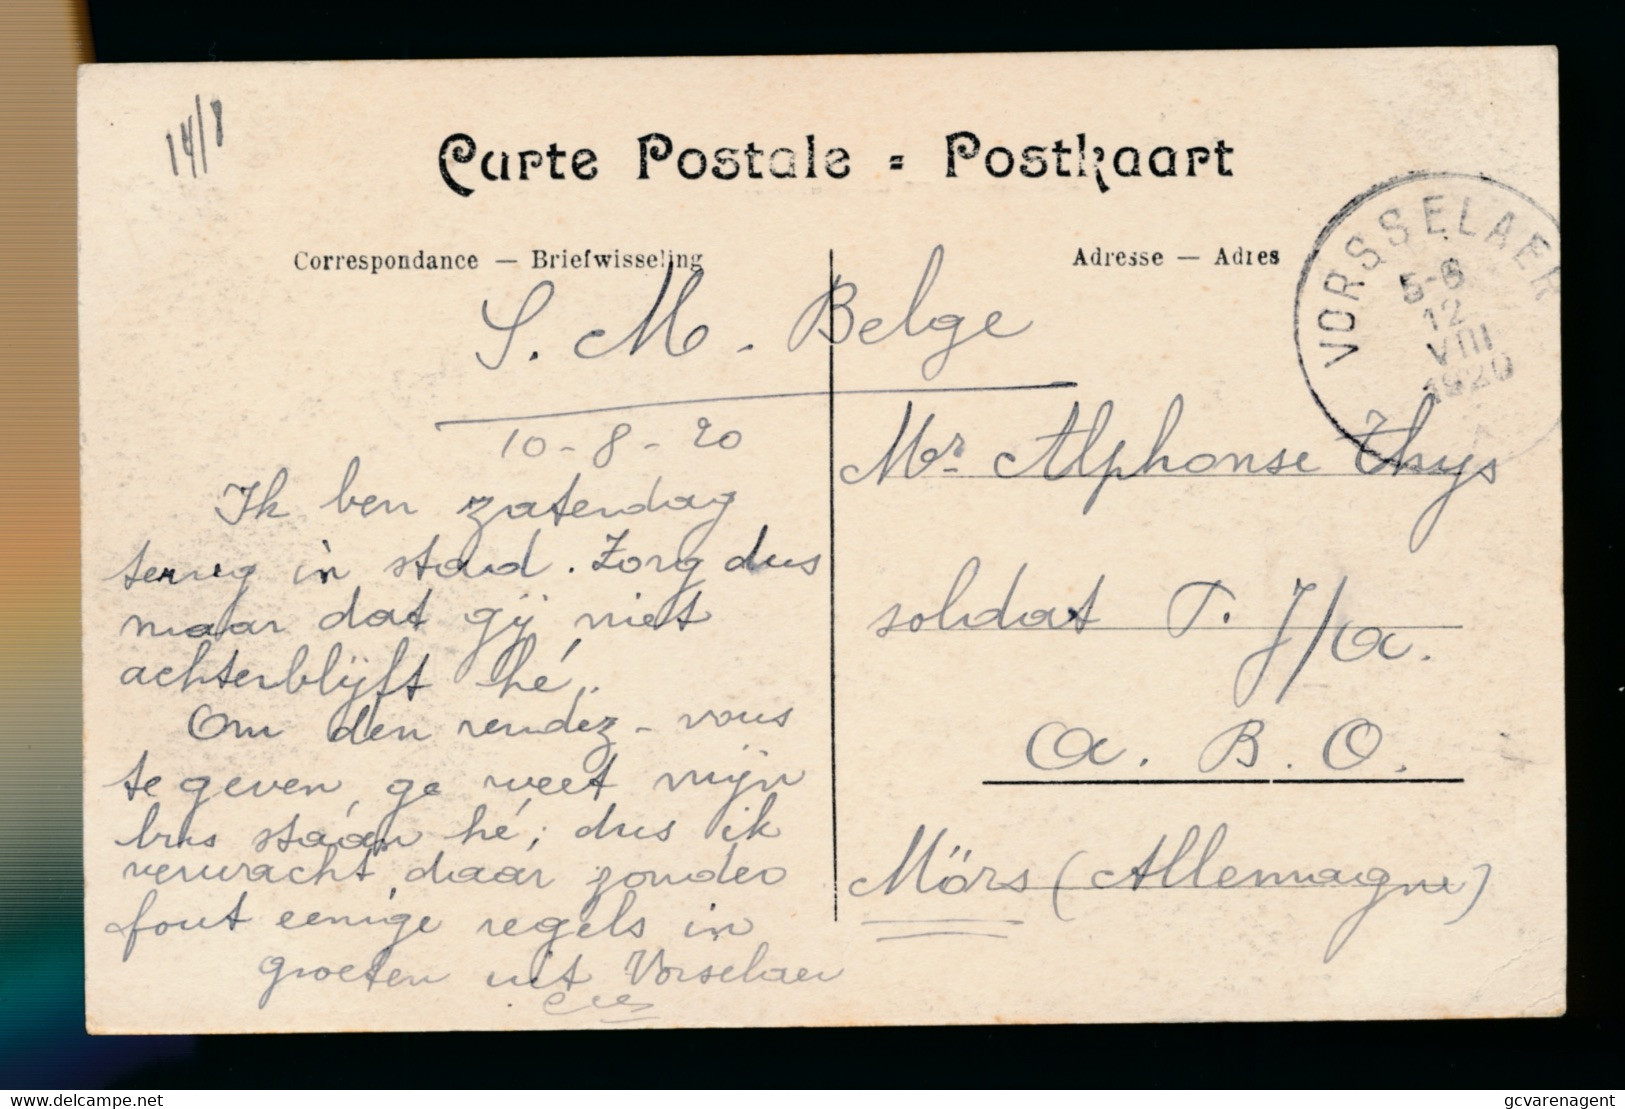 14/8
Carte Postale = Postkaart
Correspondance — Briefwisseling
Adresse — Adres
VORSSELAER
5-6
12
VIII
1920
S. M. Belge
10-8-20
Ik ben zaterdag
terug in stad. Zorg dus
maar dat gij niet
achterblijft hé.
Om den rendez-vous
te geven, ge weet mijn
bus staan hé; dus ik
verwacht daar zonder
fout eenige regels in
groeten uit Vorselaer
Mr. Alphonse Thys
soldat T. J/a.
A. B. O.
Mörs (Allemagne)
delcampe.net
gcvarenagent